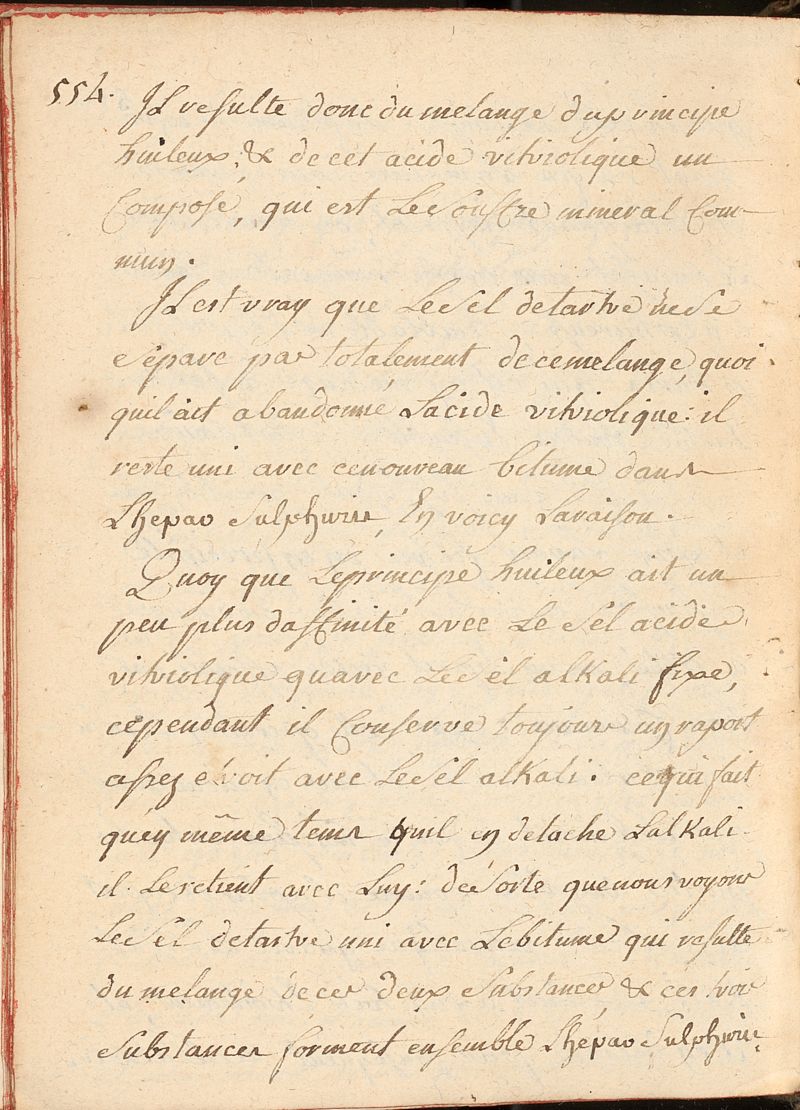 554.
Il resulte donc du melange du principe
huileux, & de cet acide vitriolique un
Composé, qui est Le Souffre mineral Com-
mun.
Il est vray que Le Sel de tartre ne Se
Sépare pas totalement de ce melange, quoi
quil ait abandonné Lacide vitriolique: il
reste uni avec ce nouveau bitume dans
Lhepar Sulphuris, En voicy La raison.
Quoy que Le principe huileux ait un
peu plus daffinité avec Le Sel acide
vitriolique quavec Le Sel alKali fixe,
cependant il Conserve toujours un raport
assez etroit avec Le Sel alKali: ce qui fait
quen même tems quil en detache LalKali
il Le retient avec Luy: de Sorte que nous voyons
Le Sel de tartre uni avec Le bitume qui resulte
du melange de ces deux Substances & ces trois
Substances forment ensemble Lhépar Sulphuris